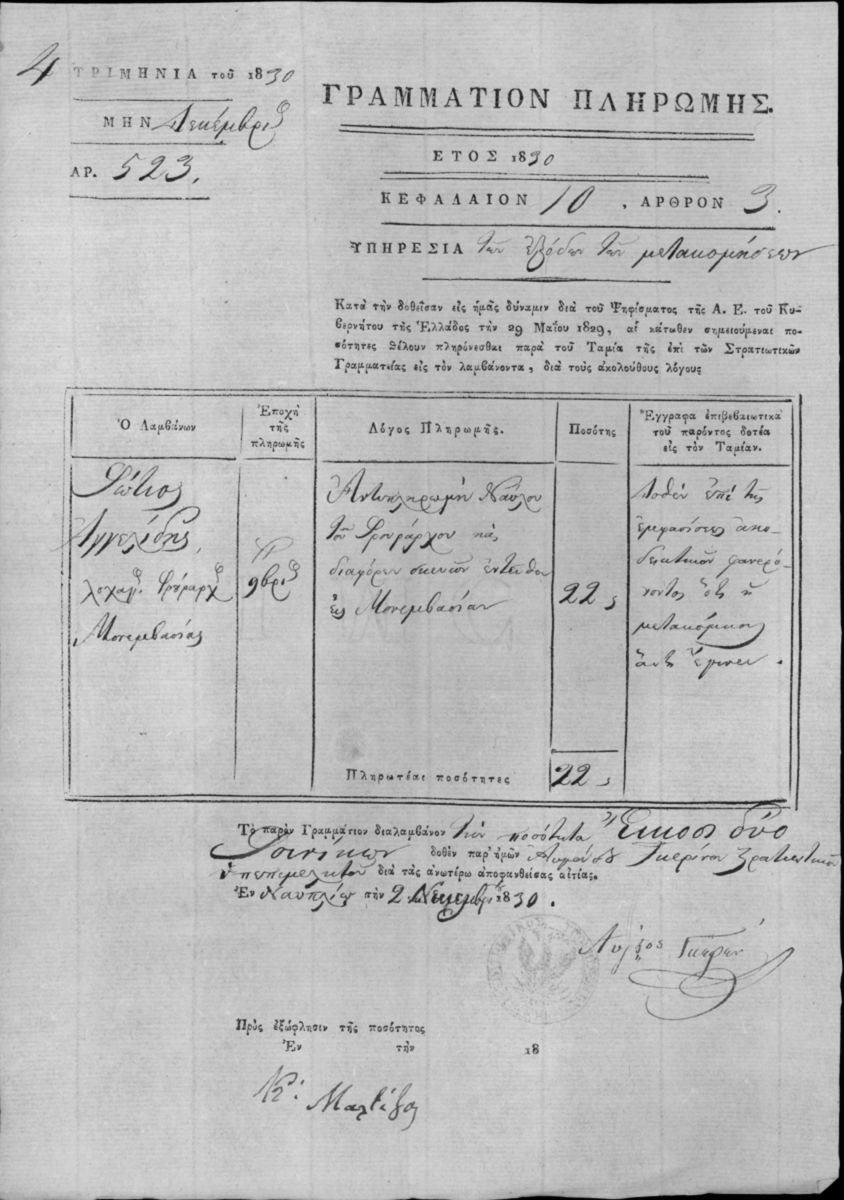 4 ΤΡΙΜΗΝΙΑ τοῦ 1830
ΜΗΝ Δεκέμβριος
ΑΡ. 523.
ΓΡΑΜΜΑΤΙΟΝ ΠΛΗΡΩΜΗΣ.
ΕΤΟΣ 1830
ΚΕΦΑΛΑΙΟΝ 10 , ΑΡΘΡΟΝ 3.
ΥΠΗΡΕΣΙΑ τῶν ἐξόδων τῶν μετακομήσεων
Κατὰ τὴν δοθεῖσαν εἰς ἡμᾶς δύναμιν διὰ τοῦ Ψηφίσματος τῆς Α. Ε. τοῦ Κυ-
βερνήτου τῆς Ἑλλάδος τὴν 29 Μαΐου 1829, αἱ κάτωθεν σημειούμεναι πο-
σότητες θέλουν πληρόνεσθαι παρὰ τοῦ Ταμία τῆς ἐπὶ τῶν Στρατιωτικῶν
Γραμματείας εἰς τὸν λαμβάνοντα, διὰ τοὺς ἀκολούθους λόγους
Ὁ Λαμβάνων
Ἐποχὴ
τῆς
πληρωμῆς
Λόγος Πληρωμῆς.
Ποσότης
Ἔγγραφα ἐπιβεβαιωτικὰ
τοῦ παρόντος δοτέα
εἰς τὸν Ταμίαν.
Φώτιος
Ἀγγελίδης
λοχαγ. Φρούραρχ
Μονεμβασίας
9βριος
Ἀντιπληρωμὴ Ναύλου
τοῦ Φρουράρχου καὶ
διαφόρων σκευῶν ἐντεῦθεν
εἰς Μονεμβασίαν
22
Δοθὲν ἐπὶ τῆς
ἐμφανίσεως ἀπο-
δεικτικῶν φανερό-
νοντος ὅτι ἡ
μετακόμισις
αὐτὴ ἔγινεν.
Πληρωτέαι ποσότητες 22
Τὸ παρὸν Γραμμάτιον διαλαμβάνον τὴν ποσότητα Εἴκοσι δύο
Φοινίκων δοθὲν παρ' ἡμῶν Αὐγούστου Γκερίνου Στρατιωτικοῦ
Ὑπεπιμελητοῦ διὰ τὰς ἀνωτέρω ἀποφανθείσας αἰτίας.
Ἐν Ναυπλίῳ τὴν 2 Δεκεμβρίου 1830.
Αὔγ στος Γκερέν
Πρὸς ἐξώφλησιν τῆς ποσότητος
Ἐν τὴν 18